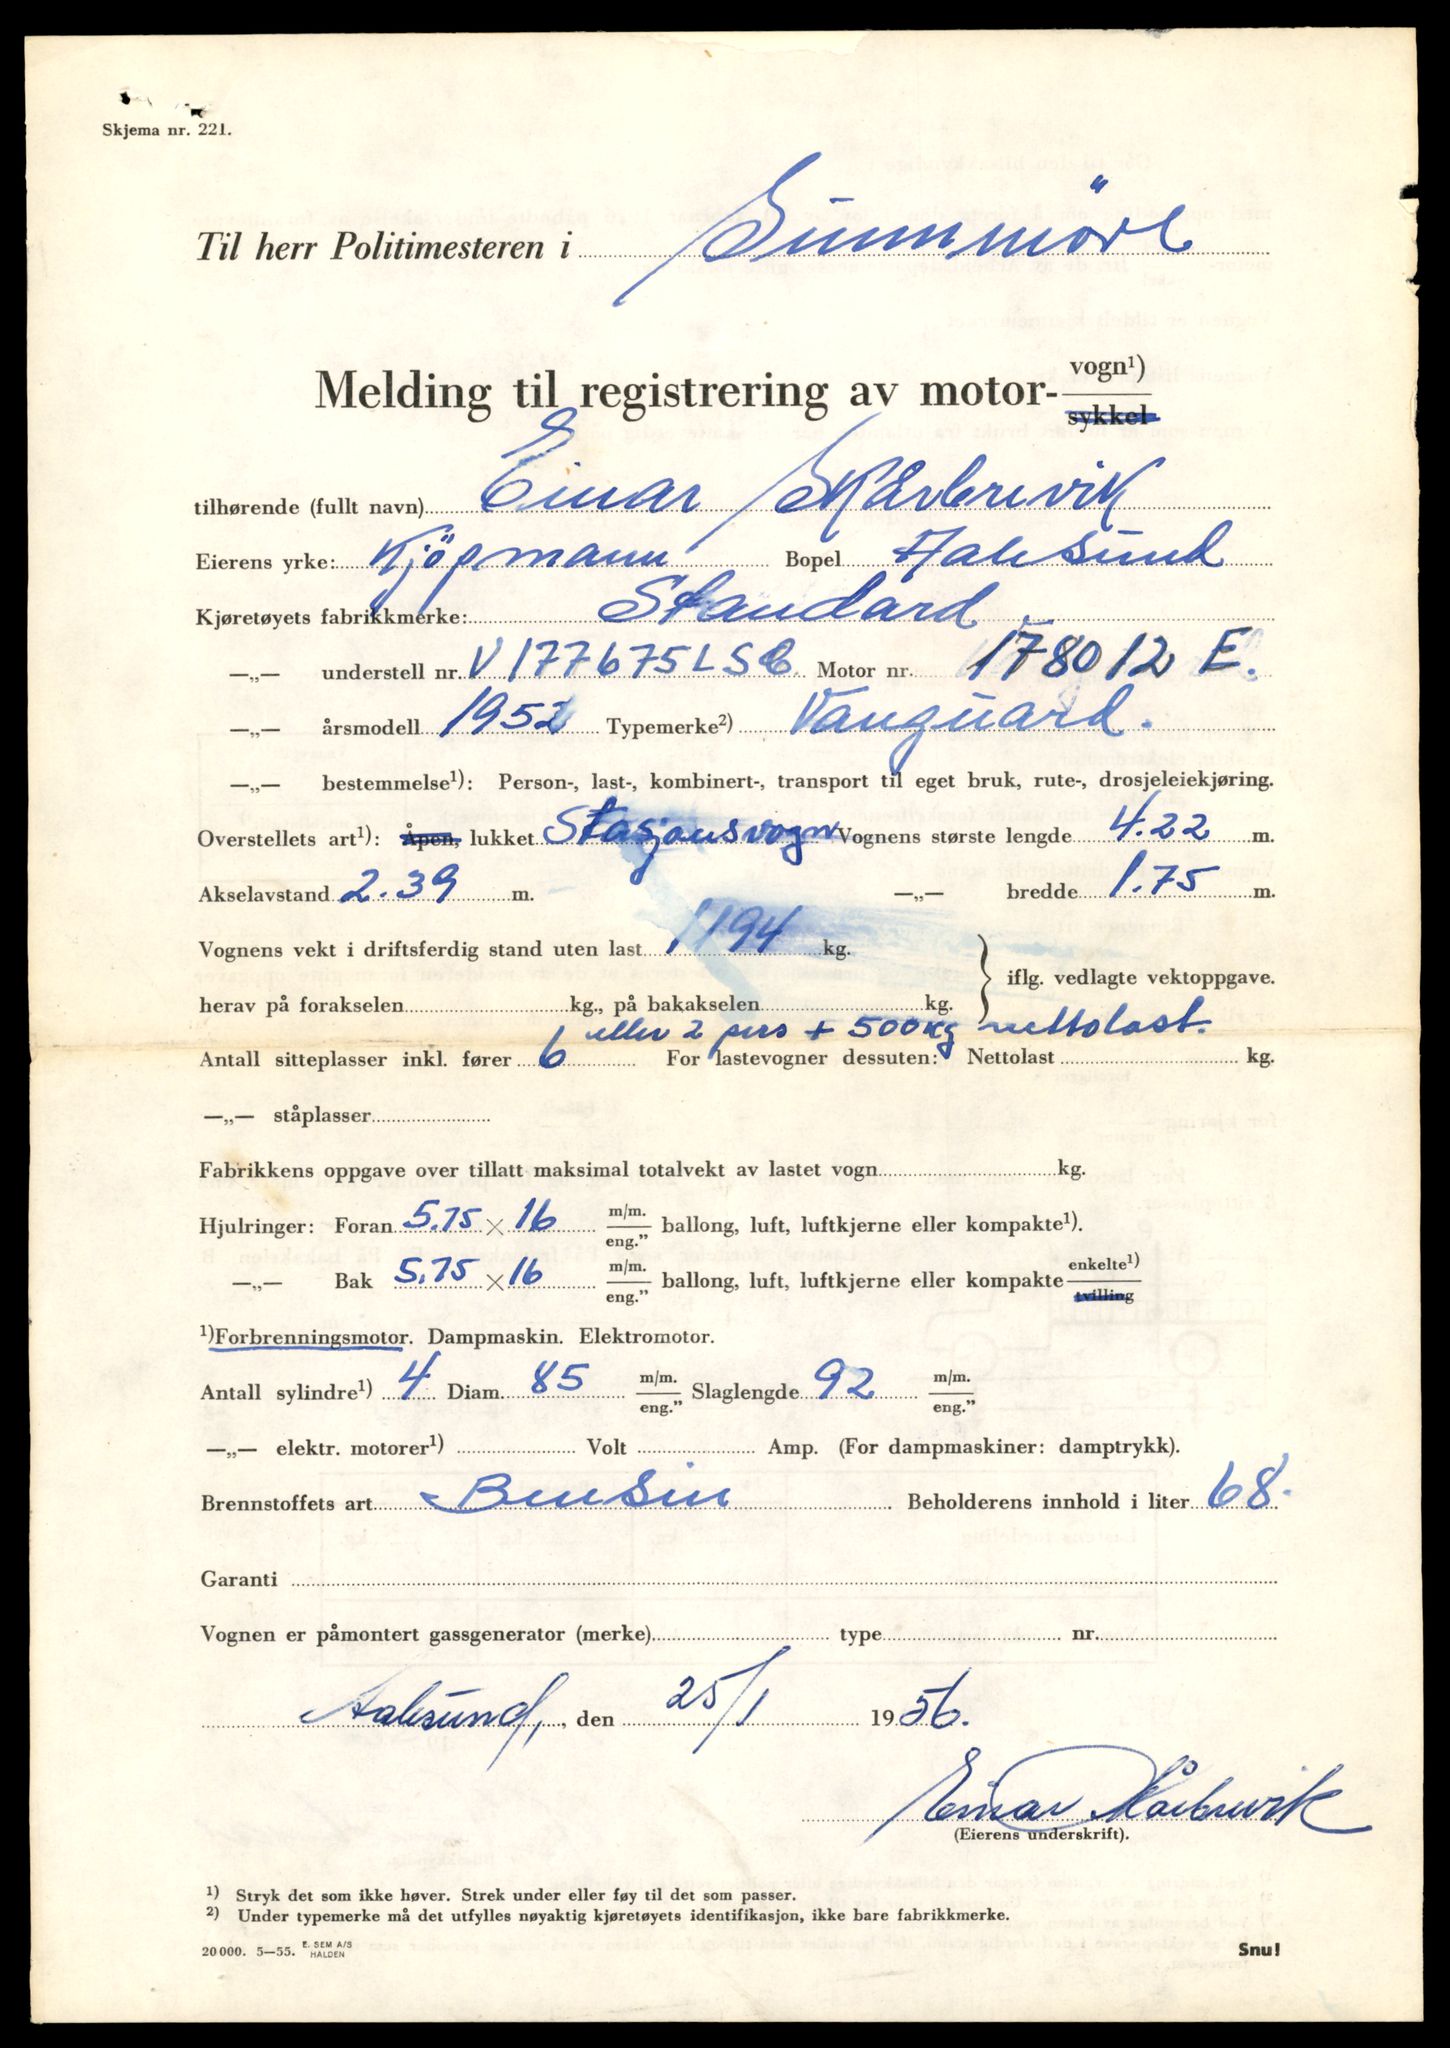 Skjema nr. 221.
Til herr Politimesteren i Sunnmöre
Melding til registrering av motor- vogn¹)
sykkel
tilhørende (fullt navn) Einar Skårbrevik
Eierens yrke: Kjöpmann Bopel Aalesund
Kjøretøyets fabrikkmerke: Standard
—„— understell nr. V177675LSC Motor nr. 178012 E.
—„— årsmodell 1952 Typemerke²) Vanguard.
—„— bestemmelse¹): Person-, last-, kombinert-, transport til eget bruk, rute-, drosjeleiekjøring.
Overstellets art¹): Åpen, lukket Stasjonsvogn Vognens største lengde 4.22 m.
Akselavstand 2.39 m. —„— bredde 1.75 m.
Vognens vekt i driftsferdig stand uten last 1194 kg.
iflg. vedlagte vektoppgave.
herav på forakselen kg., på bakakselen kg.
eller 2 pers + 500 kg nettolast.
Antall sitteplasser inkl. fører 6 For lastevogner dessuten: Nettolast kg.
—„— ståplasser
Fabrikkens oppgave over tillatt maksimal totalvekt av lastet vogn kg.
Hjulringer: Foran 5.75 × 16 m/m. eng.” ballong, luft, luftkjerne eller kompakte¹).
—„— Bak 5.75 × 16 m/m. eng.” ballong, luft, luftkjerne eller kompakte enkelte¹) tvilling
¹)Forbrenningsmotor. Dampmaskin. Elektromotor.
Antall sylindre¹) 4 Diam. 85 m/m. eng.” Slaglengde 92 m/m. eng.”
—„— elektr. motorer¹) Volt Amp. (For dampmaskiner: damptrykk).
Brennstoffets art Bensin Beholderens innhold i liter 68.
Garanti
Vognen er påmontert gassgenerator (merke) type nr.
Aalesund, den 25/1 1956.
Einar Skårbrevik
(Eierens underskrift).
¹) Stryk det som ikke høver. Strek under eller føy til det som passer.
²) Under typemerke må det utfylles nøyaktig kjøretøyets identifikasjon, ikke bare fabrikkmerke.
20 000. 5—55. E. SEM A/S HALDEN
Snu!